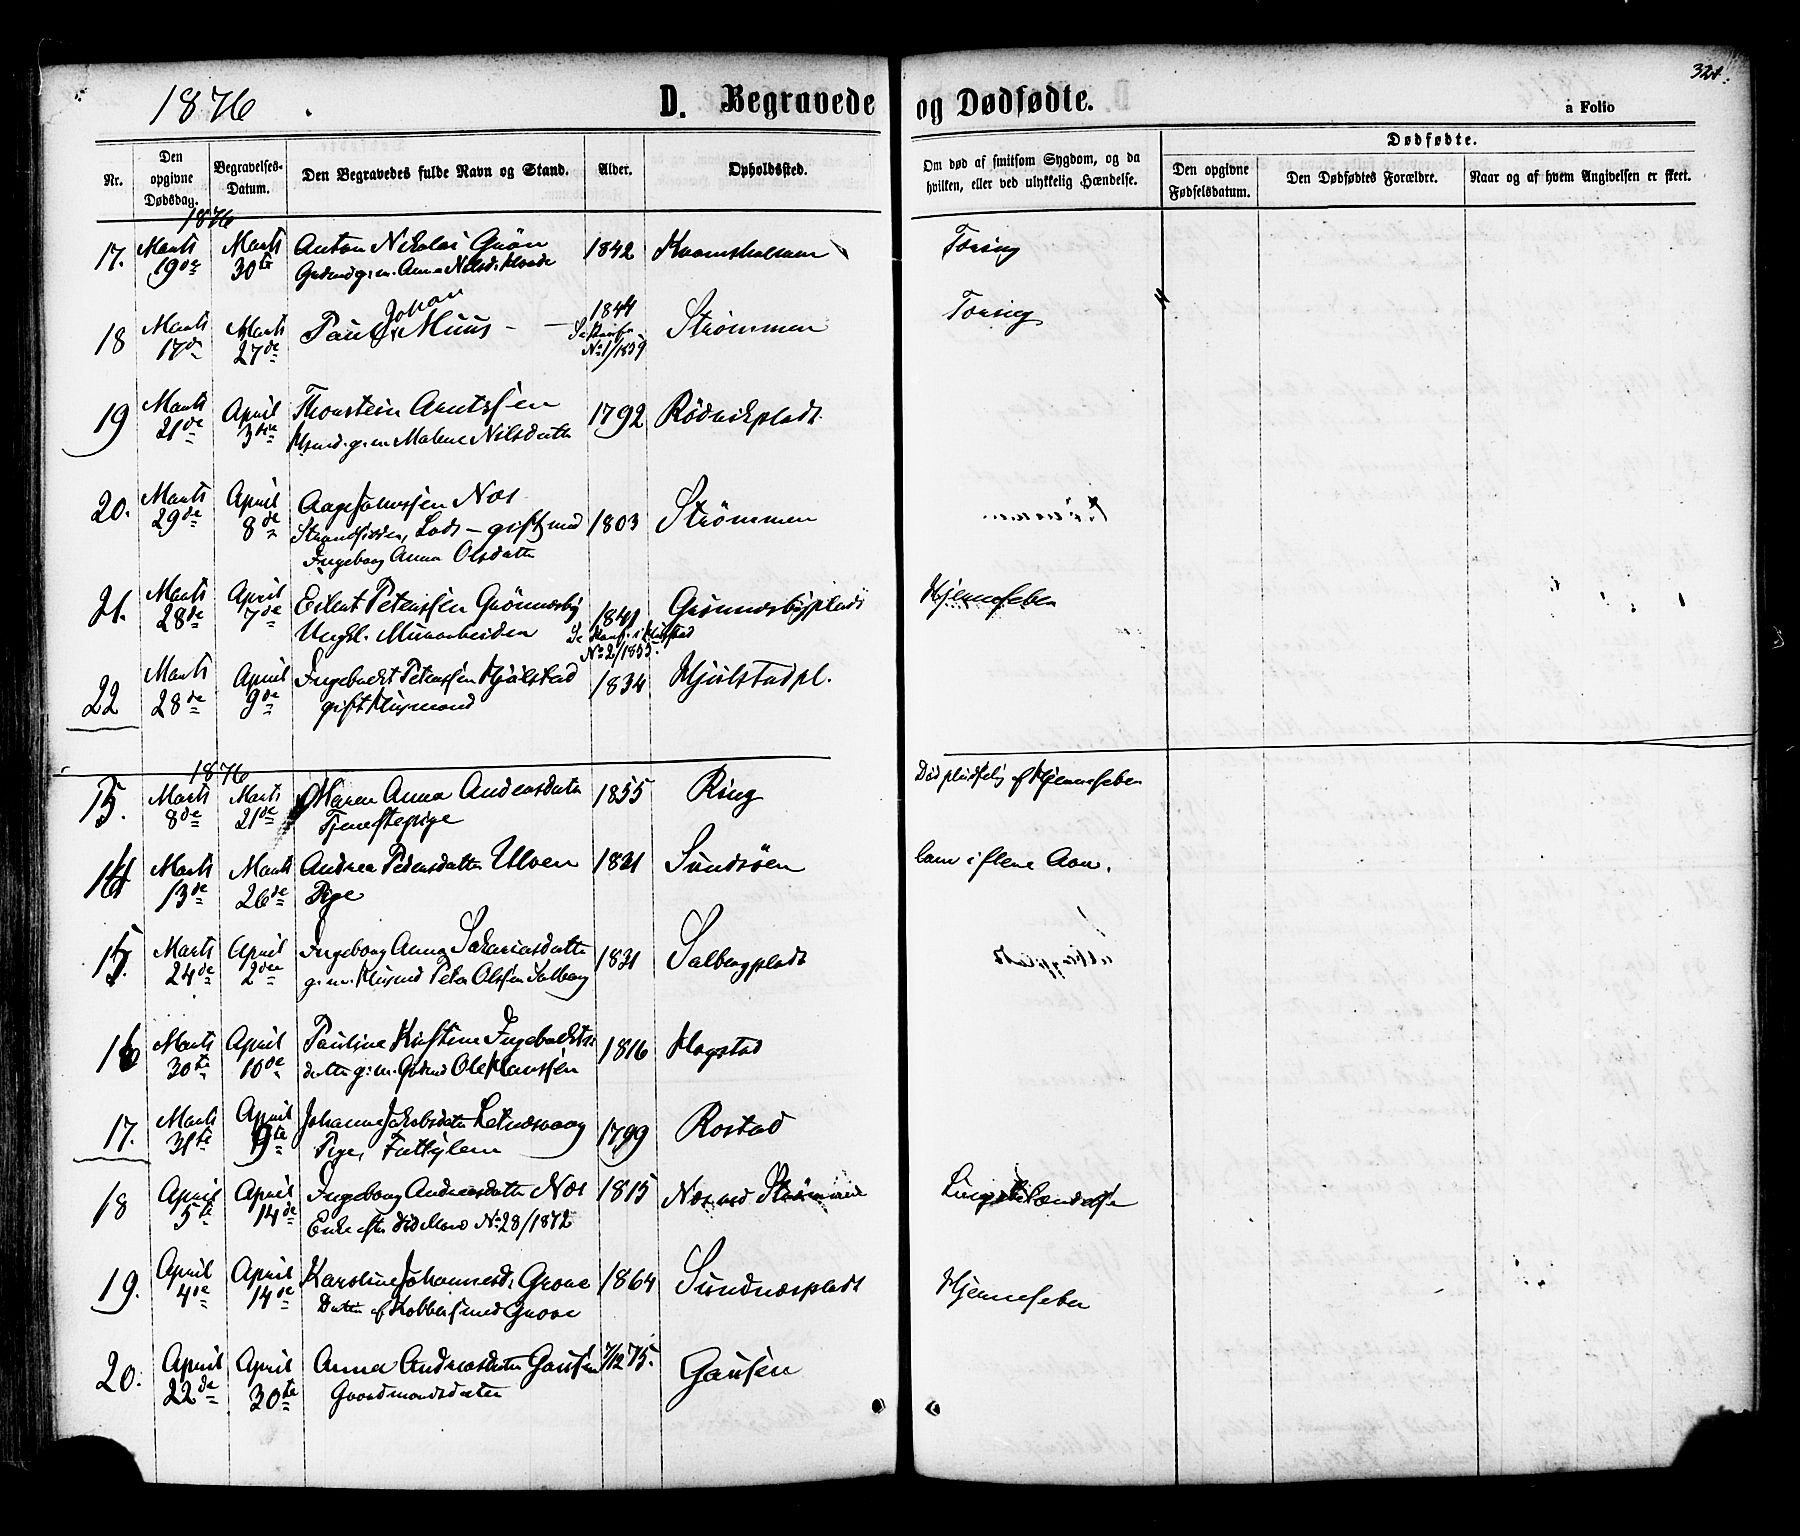 1876.
D. Begravede og Dødfødte.
324.
a Folio
Nr.
Den opgivne Dødsdag.
Begravelses-Datum.
Den Begravedes fulde Navn og Stand.
Alder.
Opholdssted.
Om død af smitsom Sygdom, og da hvilken, eller ved ulykkelig Hændelse.
Dødfødte.
Den opgivne Fødselsdatum.
Den Dødfødtes Forældre.
Naar og af hvem Angivelsen er skeet.
1876
17. Marts 19de Marts 30te Anton Nikolai Grön 1842
Grdmd g. m. Anna Nilsd.
18 Marts 17de Marts 27de Paul Johan Muus - - 1844 Strømmen
No 1/1859
19 Marts 21de April 3die Thorstein Arntssen 1792 Rödvikplads
Husmd. g. m. Malene Nilsdatter
20. Marts 29de April 8de Aage Johnssen Næs 1803 Strømmen
Strandsidder, Lods - gift med
Ingeborg Anna Olsdatter
21. Marts 28de April 7de Eilert Peterssen Grönnesby 1841 Grönnesbyplads Hjernefeber
Ungk. Murarbeider
No 2/1855.
22 Marts 28de April 9de Ingebrikt Peterssen Hjulstad 1834 Hjulstadpl.
gift Husmand
1876
13. Marts 8de Marts 21de Karen Anna Andersdatter 1855 Ring Död pludselig af Hjernefeber
Tjenestepige
14 Marts 13de Marts 26de Andrea Pedersdatter Ulven 1821 Sundsöen lam i flere Aar.
Pige
15. Marts 24de April 2den Ingeborg Anna Sakariasdatter 1831 Salbergplads
g. m. Husmd Peter Olssen Salberg
16 Marts 30te April 10de Pauline Kristine Ingebrikts- 1816 Hogstad
datter g. m. Grdmd Ole Hanssen
17. Marts 31te April 9de Johanna Jakobsdatter 1799 Rostad
Pige, Fattiglem
18 April 5te April 14de Ingeborg Andreasdatter Næs 1815 Næs ved Strømmen
Enke efter No 28/1872
19. April 4de April 14de Karoline Johannesd. Grove 1864 Sundnæsplads Hjernefeber
Datter af Kobbersmed Grove
20. April 22de April 30te Anna Andreasdatter Gausen 7/12 75. Gausen
Gaardmandsdatter